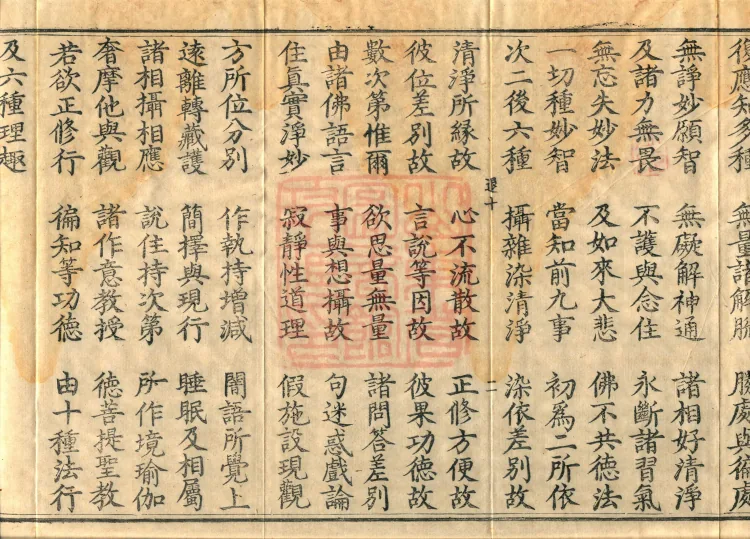 應知多種 無量諸解脫 勝處與徧處
無諍妙願智 無礙解神通 諸相好清淨
及諸力無畏 不護與念住 永斷諸習氣
無忘失妙法 及如來大悲 佛不共德法
一切種妙智 當知前九事 初爲二所依
次二後六種 攝雜染清淨 染依差別故
十 二
清淨所緣故 心不流散故 正修方便故
彼位差別故 言說等因故 彼果功德故
數次第惟爾 欲思量無量 諸問答差別
由諸佛語言 事與想攝故 句迷惑戲論
住眞實淨妙 寂靜性道理 假施設現觀
方所位分別 作執持增減 闇語所覺上
遠離轉藏護 簡擇與現行 睡眠及相屬
諸相攝相應 說住持次第 所作境瑜伽
奢摩他與觀 諸作意教授 德菩提聖教
若欲正修行 徧知等功德 由十種法行
及六種理趣